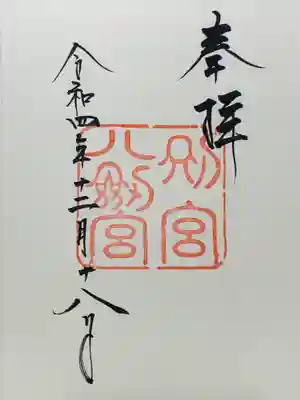 奉拝
別宮
八剣宮
令和四年十二月十八日